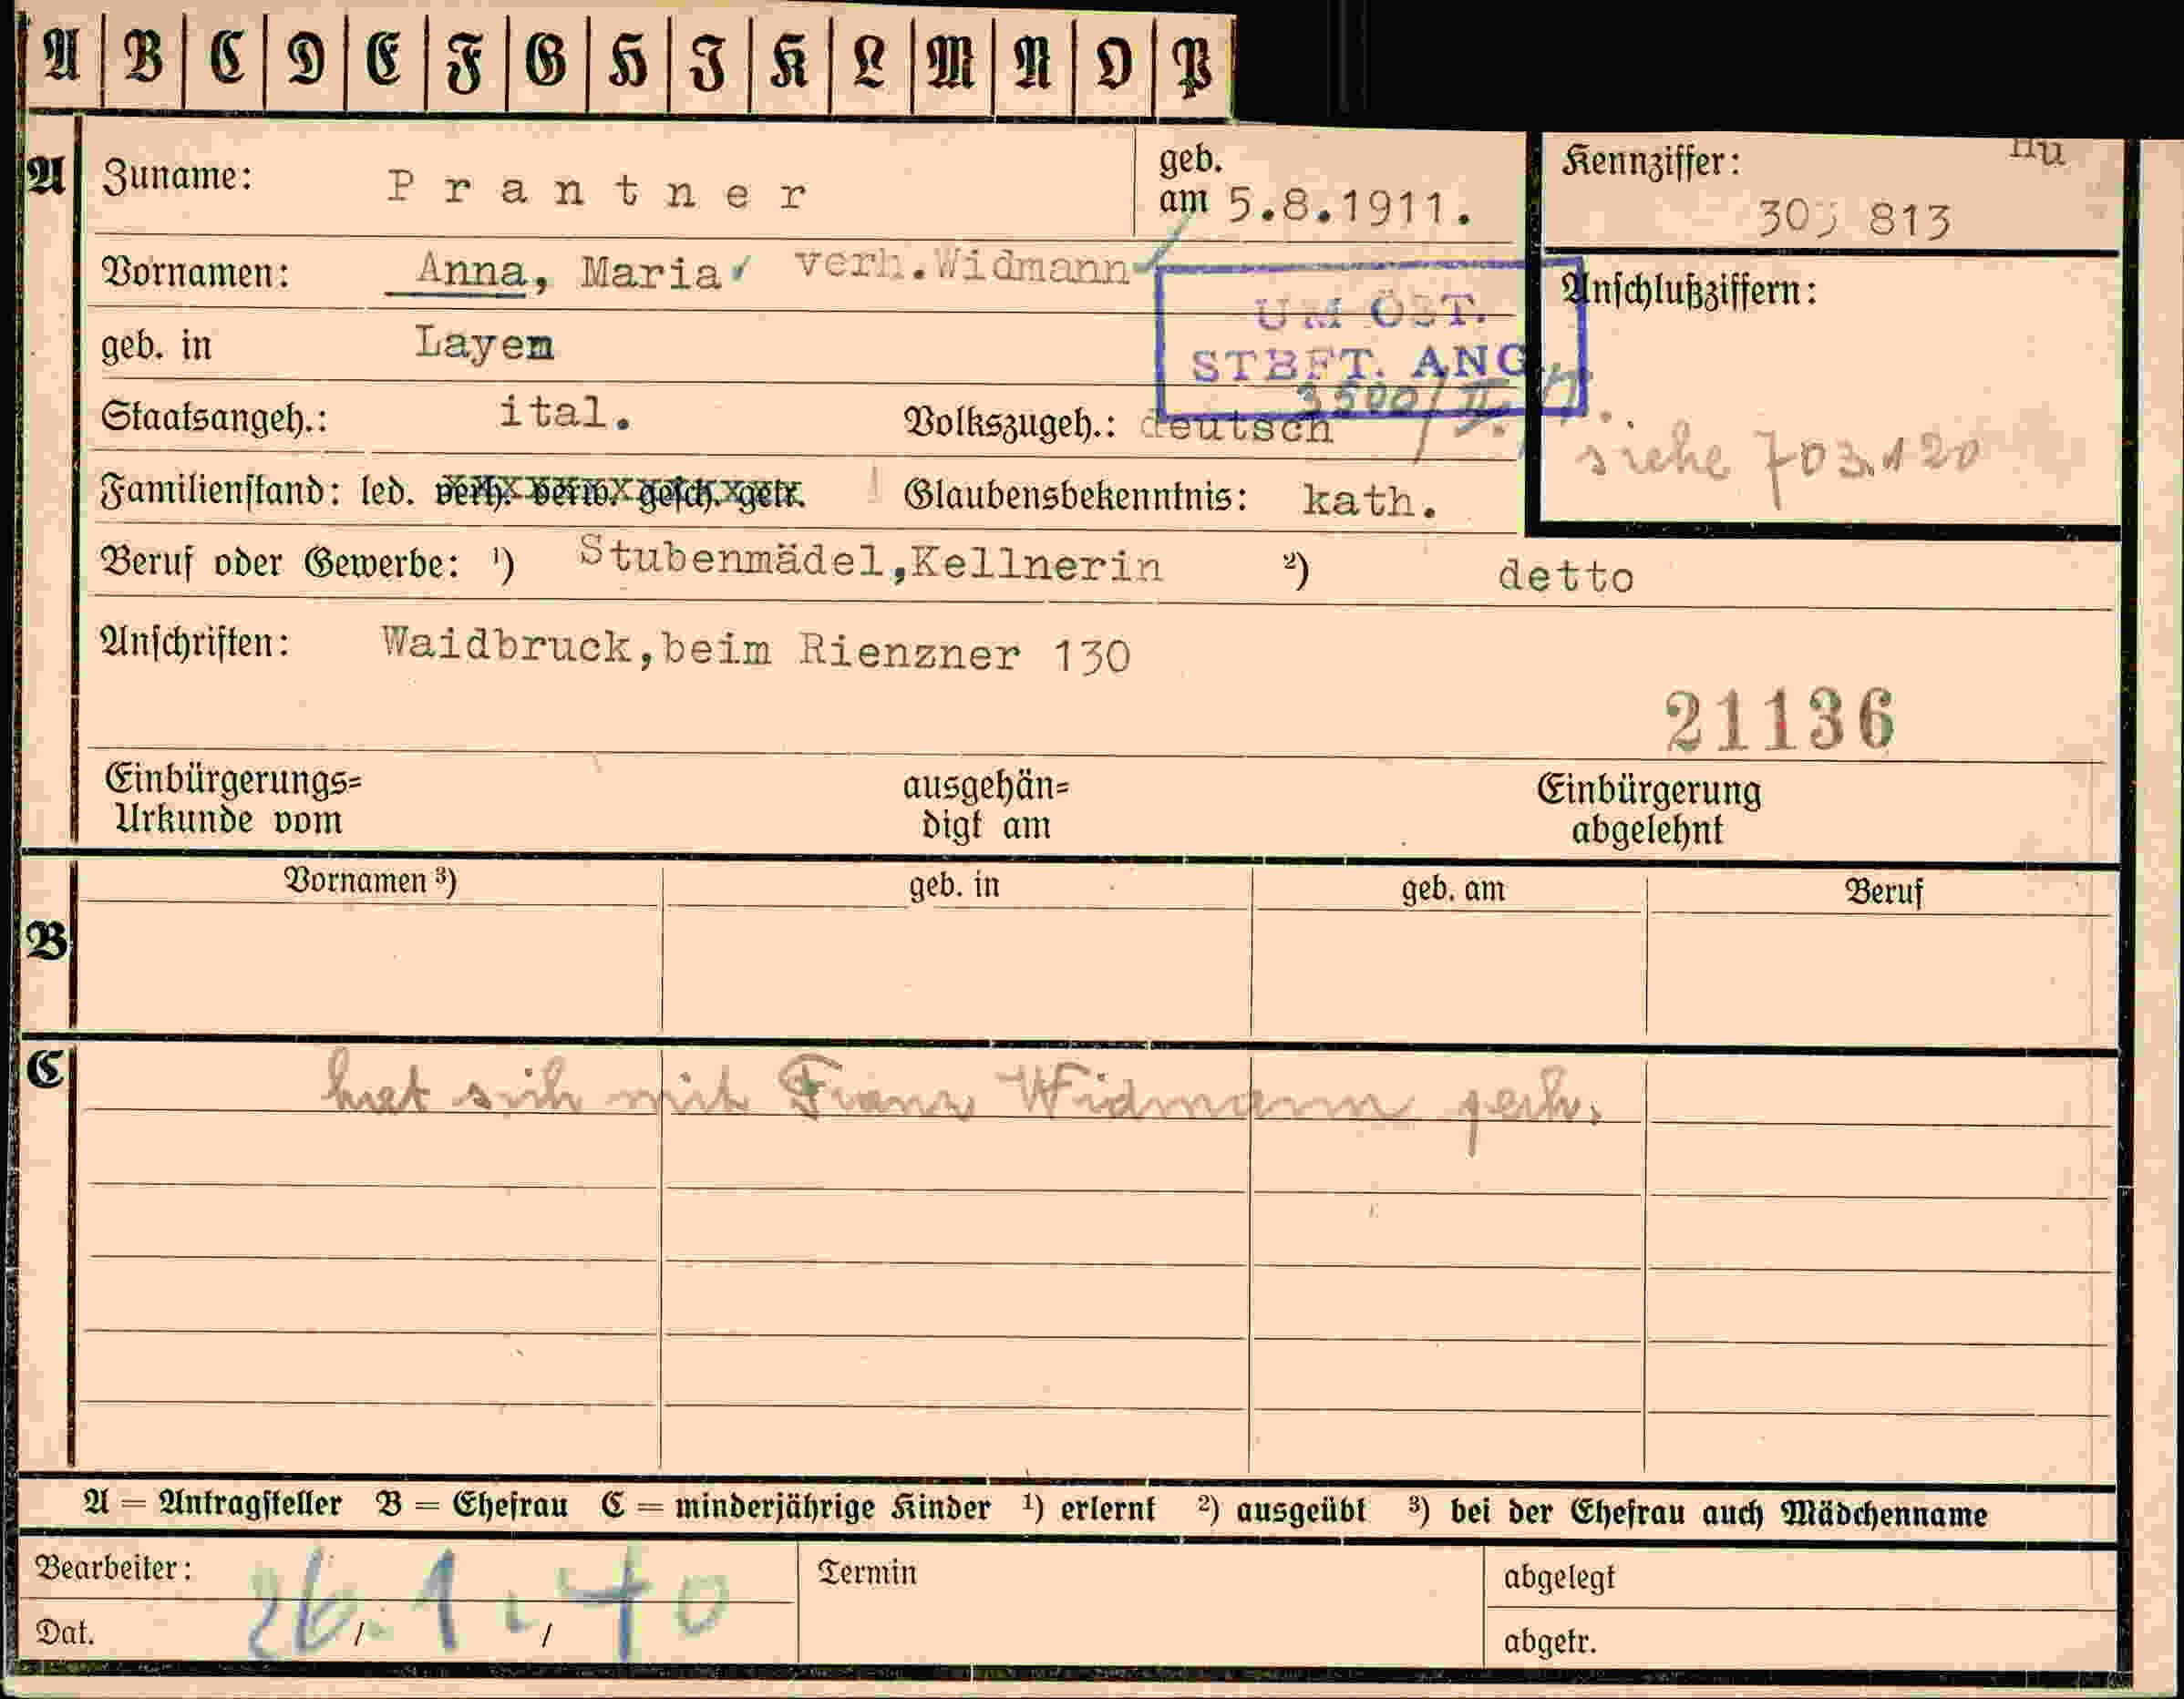 A B C D E F G H I K L M N O P
A Zuname: Prantner geb. am 5.8.1911. Kennziffer: 813
Vornamen: Anna, Maria verh.Widmann Anschlußziffern:
UM ÖST.
geb. in Layen
STBFT. ANG
3500/II.
Staatsangeh.: ital. Volkszugeh.: deutsch
siehe 703.120
Familienstand: led. verh. verw. gesch. getr. Glaubensbekenntnis: kath.
Beruf oder Gewerbe: ¹) Stubenmädel,Kellnerin ²) detto
Anschriften: Waidbruck,beim Rienzner 130
21136
Einbürgerungs= ausgehän= Einbürgerung
Urkunde vom digt am abgelehnt
Vornamen ³) geb. in geb. am Beruf
B
C hat sich mit Franz Widmann verh.
A = Antragsteller B = Ehefrau C = minderjährige Kinder ¹) erlernt ²) ausgeübt ³) bei der Ehefrau auch Mädchenname
Bearbeiter: Termin abgelegt
Dat. 26.1.40 abgetr.